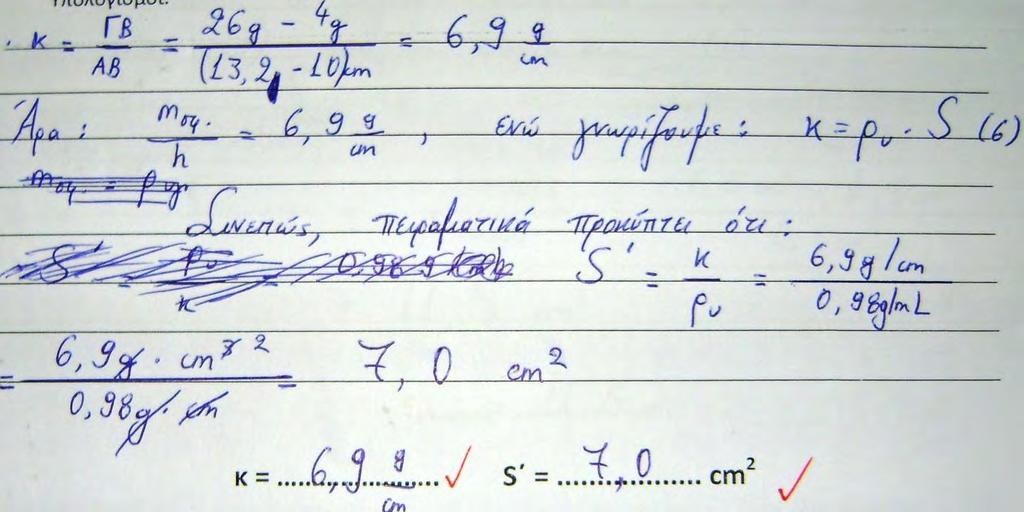 Υπολογισμοί:
. κ = ΓΒ / ΑΒ = 26g - 4g / (13,2 - 10)cm = 6,9 g/cm
Άρα : mσφ. / h = 6,9 g/cm , ενώ γνωρίζουμε : κ = ρυ . S (6)
Συνεπώς, πειραματικά προκύπτει ότι :
S' = κ / ρυ = 6,9g/cm / 0,98g/mL
= 6,9g . cm³ ² / 0,98g . cm = 7,0 cm²
κ = 6,9 g/cm ✓ S´ = 7,0 cm² ✓